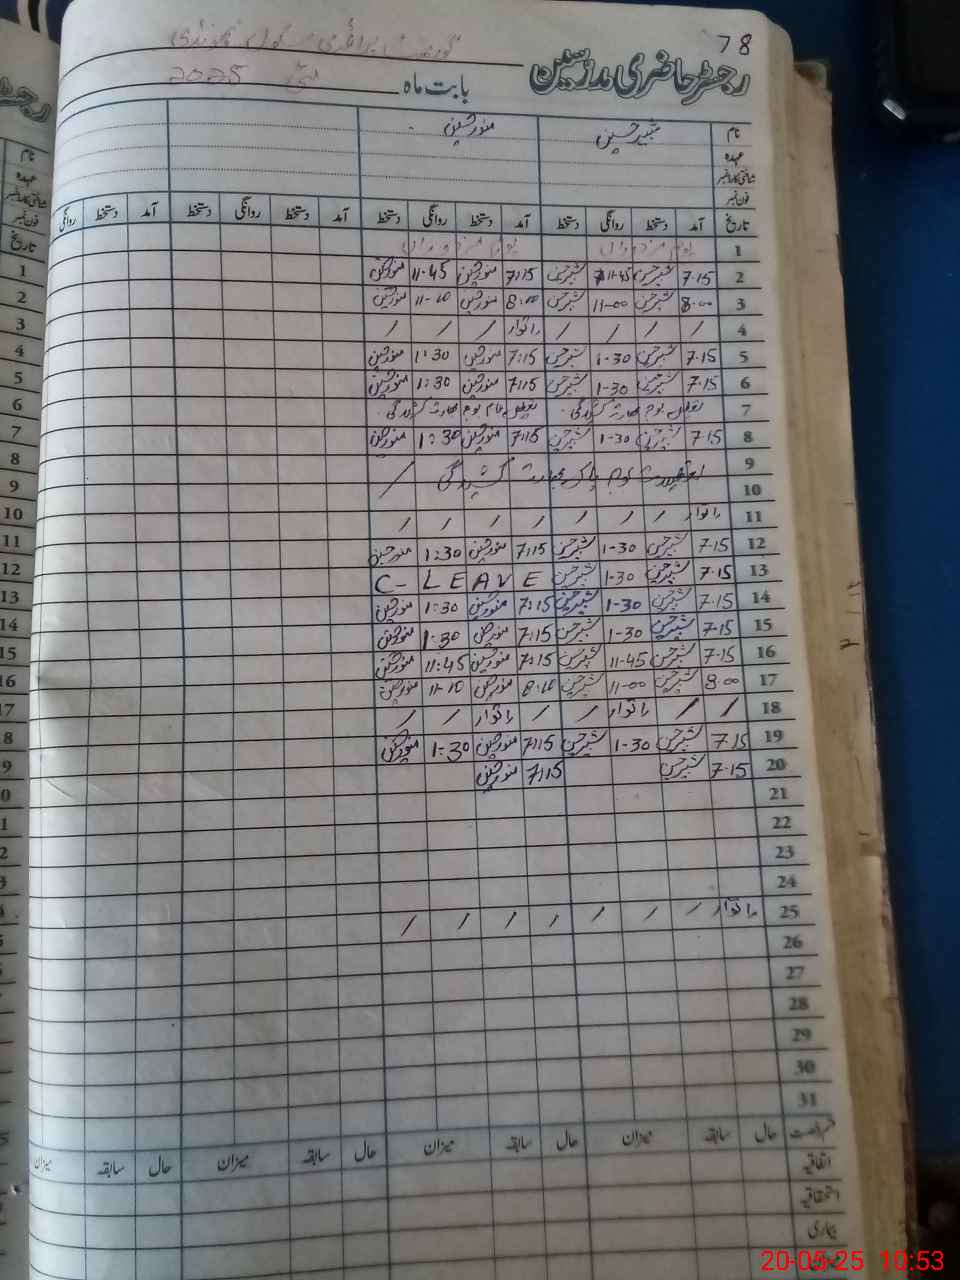 78
رجسٹر حاضری مدرسین
گورنمنٹ پرائمری سکول
بابت ماہ مئی 2025
نام شبیر حسین منور حسین
عہدہ
شناختی کارڈ نمبر
فون نمبر
تاریخ آمد دستخط روانگی دستخط آمد دستخط روانگی دستخط آمد دستخط روانگی دستخط آمد دستخط روانگی
1 یوم مزدوراں یوم مزدوراں
2 7.15 شبیر حسین 11-45 شبیر حسین 7:15 منور حسین 11-45 منور حسین
3 8.00 شبیر حسین 11-00 شبیر حسین 8:10 منور حسین 11-10 منور حسین
4 / / / / اتوار / / /
5 7.15 شبیر حسین 1-30 شبیر حسین 7:15 منور حسین 1:30 منور حسین
6 7.15 شبیر حسین 1-30 شبیر حسین 7:15 منور حسین 1:30 منور حسین
7 تعطیل یوم بھارت کشیدگی تعطیل عام یوم بھارت کشیدگی
8 7.15 شبیر حسین 1-30 شبیر حسین 7:15 منور حسین 1:30 منور حسین
9 پاک بھارت کشیدگی /
10
11 اتوار / / / / / / /
12 7.15 شبیر حسین 1-30 شبیر حسین 7:15 منور حسین 1:30 منور حسین
13 7.15 شبیر حسین 1-30 شبیر حسین C- LEAVE
14 7.15 شبیر حسین 1-30 شبیر حسین 7:15 منور حسین 1:30 منور حسین
15 7.15 شبیر حسین 1-30 شبیر حسین 7:15 منور حسین 1:30 منور حسین
16 7.15 شبیر حسین 11-45 شبیر حسین 7:15 منور حسین 11:45 منور حسین
17 8.00 شبیر حسین 11-00 شبیر حسین 8:10 منور حسین 11-10 منور حسین
18 / / اتوار / / اتوار / /
19 7.15 شبیر حسین 1-30 شبیر حسین 7:15 منور حسین 1:30 منور حسین
20 7.15 شبیر حسین 7:15 منور حسین
21
22
23
24
25 اتوار / / / / / / /
26
27
28
29
30
31
قسم رخصت حال سابقہ میزان حال سابقہ میزان حال سابقہ میزان حال سابقہ میزان
اتفاقیہ
استحقاقیہ
بیماری
20-05-25 10:53